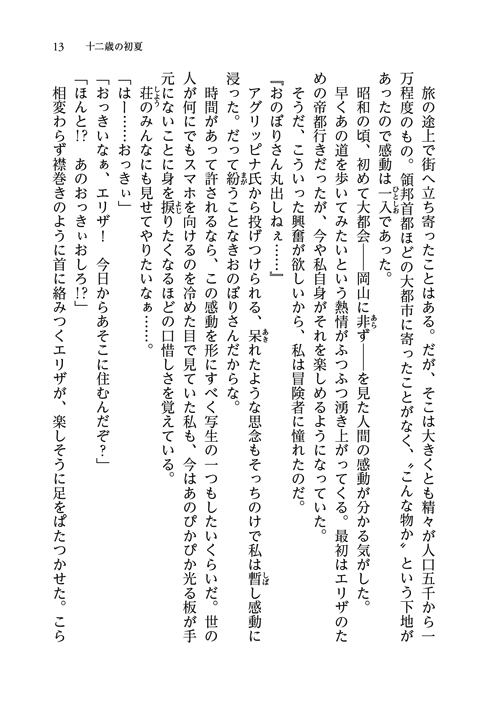 13　十二歳の初夏
旅の途上で街へ立ち寄ったことはある。だが、そこは大きくとも精々が人口五千から一
万程度のもの。領邦首都ほどの大都市に寄ったことがなく、〝こんな物か〟という下地が
あったので感動は一入であった。
昭和の頃、初めて大都会――岡山に非ず――を見た人間の感動が分かる気がした。
早くあの道を歩いてみたいという熱情がふつふつ湧き上がってくる。最初はエリザのた
めの帝都行きだったが、今や私自身がそれを楽しめるようになっていた。
そうだ、こういった興奮が欲しいから、私は冒険者に憧れたのだ。
『おのぼりさん丸出しねぇ……』
アグリッピナ氏から投げつけられる、呆れたような思念もそっちのけで私は暫し感動に
浸った。だって紛うことなきおのぼりさんだからな。
時間があって許されるなら、この感動を形にすべく写生の一つもしたいくらいだ。世の
人が何にでもスマホを向けるのを冷めた目で見ていた私も、今はあのぴかぴか光る板が手
元にないことに身を捩りたくなるほどの口惜しさを覚えている。
荘のみんなにも見せてやりたいなぁ……。
「はー……おっきぃ」
「おっきいなぁ、エリザ！　今日からあそこに住むんだぞ？」
「ほんと!?　あのおっきぃおしろ!?」
相変わらず襟巻きのように首に絡みつくエリザが、楽しそうに足をぱたつかせた。こら